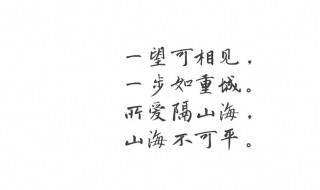 一望可相见，
一步如重城。
所爱隔山海，
山海不可平。